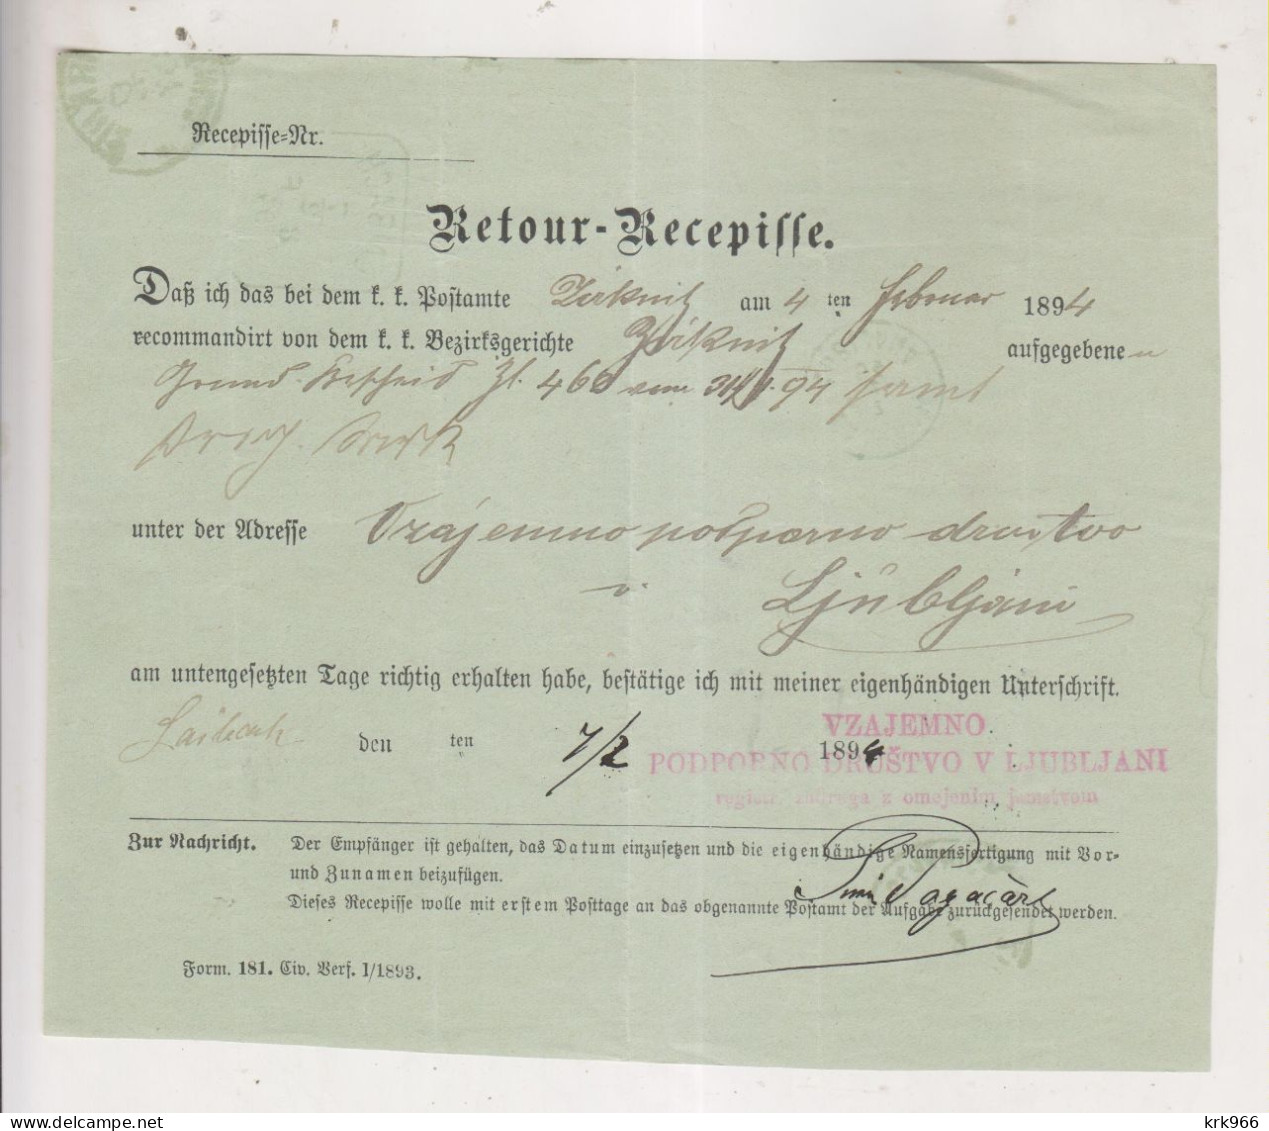 Recepisse-Nr.
Retour-Recepisse.
Daß ich das bei dem k. k. Postamte Zirknitz am 4 ten Februar 1894
recommandirt von dem k. k. Bezirksgerichte Zirknitz aufgegebene n
Grund Bescheid Zl. 466 vom 94 samt
unter der Adresse Vzajemno podporno drustvo
v Ljubljani
am untengesetzten Tage richtig erhalten habe, bestätige ich mit meiner eigenhändigen Unterschrift.
VZAJEMNO
Laibach den ten 7/2 1894
PODPORNO DRUŠTVO V LJUBLJANI
registr. zadruga z omejenim jamstvom
Zur Nachricht. Der Empfänger ist gehalten, das Datum einzusetzen und die eigenhändige Namensfertigung mit Vor-
und Zunamen beizufügen.
Dieses Recepisse wolle mit erstem Posttage an das obgenannte Postamt der Aufgabe zurückgesendet werden.
Pogačar
Form. 181. Civ. Verf. I/1893.
krk966